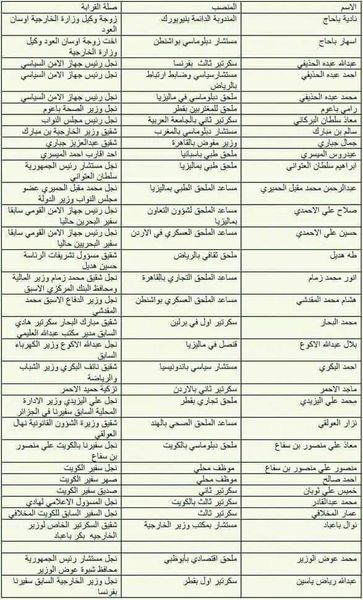 الاسم المنصب صلة القرابة
نادية باحاج المندوبة الدائمة بنيويورك زوجة وكيل وزارة الخارجية اوسان
العود
اسهار باحاج مستشار دبلوماسي بواشنطن اخت زوجة اوسان العود وكيل
وزارة الخارجية
عبدالله عبده الحذيفي سكرتير ثالث بفرنسا نجل رئيس جهاز الامن السياسي
احمد عبده الحذيفي مستشار سياسي وضابط ارتباط
بالرياض نجل رئيس جهاز الامن السياسي
محمد عبده الحذيفي ملحق دبلوماسي في ماليزيا نجل رئيس جهاز الامن السياسي
رامي باعوم ملحق للمغتربين بقطر نجل وزير الصحة باعوم
معاذ سلطان البركاني سكرتير ثاني بالجامعة العربية نجل رئيس مجلس النواب
سالم بن مبارك مستشار دبلوماسي بالمغرب شقيق وزير الخارجية بن مبارك
جمال جباري وزير مفوض بالقاهرة شقيق عبدالعزيز جباري
عيدروس الميسري ملحق طبي باسبانيا احد اقارب احمد الميسري
ابراهيم سلطان العتواني ملحق طبي بماليزيا نجل مستشار رئيس الجمهورية
سلطان العتواني
عبدالرحمن محمد مقبل الحميري مساعد الملحق الطبي بماليزيا نجل محمد مقبل الحميري عضو
مجلس النواب وزير الدولة
صلاح علي الاحمدي مساعد الملحق لشؤون التعاون
بماليزيا نجل رئيس جهاز الامن القومي سابقا
سفير البحرين حاليا
حسين علي الاحمدي مساعد الملحق العسكري في الاردن نجل رئيس جهاز الامن القومي سابقا
سفير البحرين حاليا
طه هديل ملحق ثقافي بالرياض شقيق مسؤول تشريفات الرئاسة
حسين هديل
انور محمد زمام مساعد الملحق التجاري بالقاهرة نجل شقيق محمد زمام وزير المالية
ومحافظ البنك المركزي الاسبق
هشام محمد المقدشي مساعد الملحق العسكري بواشنطن نجل وزير الدفاع الاسبق محمد
المقدشي
محمد البحار سكرتير اول في برلين شقيق مبارك البحار سكرتير هادي
السابق مدير مكتب عبدالله العليمي
بلال عبدالله الاكوع قنصل في ماليزيا نجل عبدالله الاكوع وزير الكهرباء
السابق
احمد البكري مستشار سياسي باندونيسيا شقيق نائف البكري وزير الشباب
والرياضة
ماجد الاحمر سكرتير ثاني بالاردن تزكية حميد الاحمر
محمد علي اليزيدي ملحق تجاري بقطر نجل علي اليزيدي وزير الادارة
المحلية السابق سفيرنا في الجزائر
نزار العولقي مساعد الملحق الصحي بالهند شقيق وزيرة الشؤون القانونية نهال
العولقي
معاذ علي منصور بن سفاع ملحق دبلوماسي بالكويت نجل سفيرنا بالكويت علي منصور
بن سفاع
منصور علي منصور بن سفاع موظف محلي نجل سفير الكويت
احمد صالح موظف محلي صهر سفير الكويت
خميس علي ثوبان سكرتير ثاني صديق سفير الكويت
محمد عبدالقادر سكرتير ثالث بالكويت نجل المسؤول الاعلامي لهادي
عمار المخلافي سكرتير ثالث نجل السفير السابق للكويت المخلافي
نوال باعباد مستشار بمكتب وزير الخارجية شقيق السكرتير الخاص لوزير
الخارجيه بكر باعباد
محمد عوض الوزير ملحق اقتصادي بأبوظبي نجل مستشار رئيس الجمهورية
محافظ شبوة عوض الوزير
عبدالله رياض ياسين سكرتير اول بقطر نجل وزير الخارجية السابق سفيرنا
بفرنسا